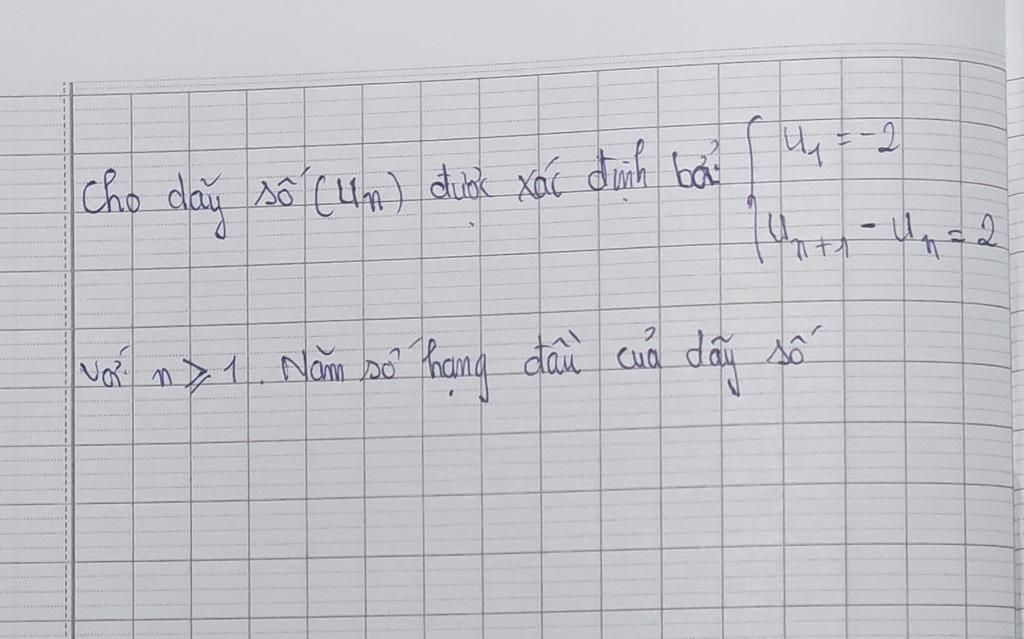 Cho dãy số (un) được xác định bởi { u1 = -2
un+1 - un = 2
với n ≥ 1. Năm số hạng đầu của dãy số